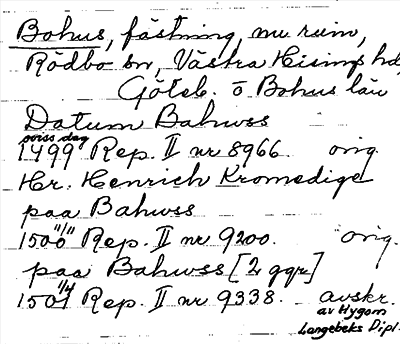 Bohus, fästning, nu ruin,
Rödbo sn, Västra Hisings hd,
Göteb. o Bohus län
Datum Bahwss
oviss dag
1499 Rep. II nr 8966. orig.
Hr. Henrich Kromedige
paa Bahwss
11/11
1500 Rep. II nr 9200. orig.
paa Bahwss [2 ggr]
1/4
1501 Rep. II nr 9338. avskr.
av Hygom
Langebeks Dipl.